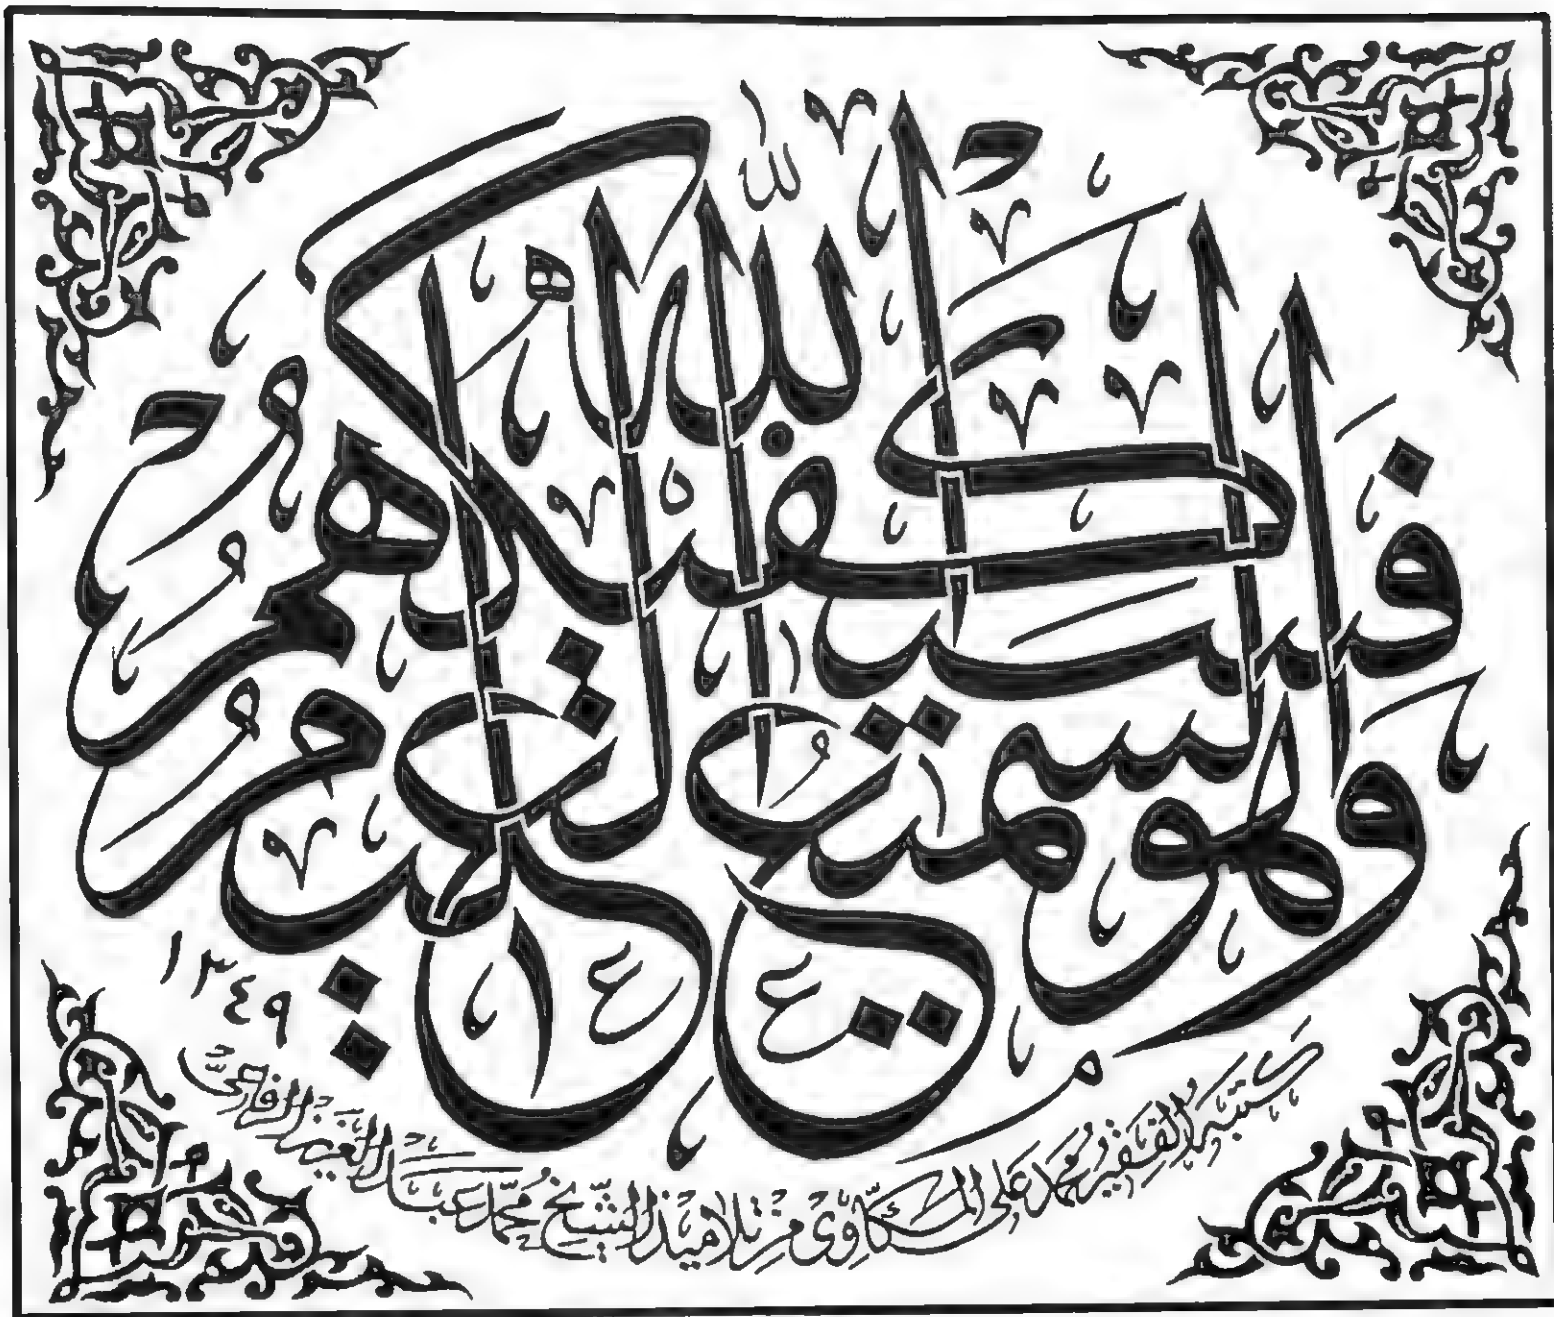 فسيكفيكهم الله وهو السميع العليم
١٣٤٩
كتبه الفقير محمد على المكاوى من تلاميذ الشيخ محمد عبد العزيز الرفاعى